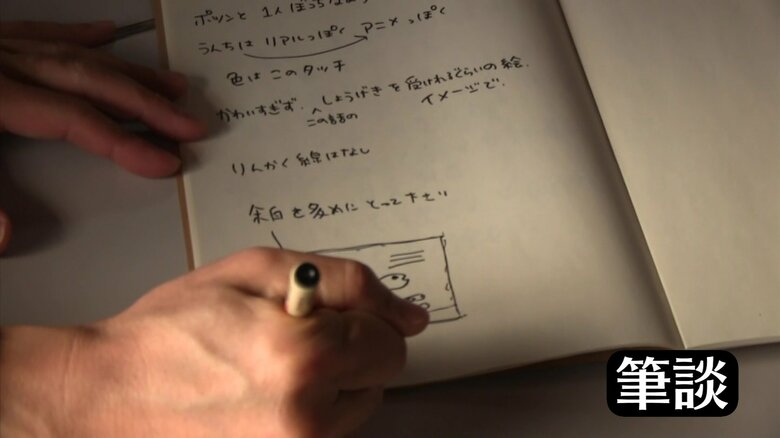 ポツンと 1人ぼっちな
うんちは リアルっぽく アニメっぽく
色は このタッチ
かわいすぎず、しょうげきを受けれるぐらいの絵
この話の
イメージで。
りんかく線はなし
余白を多めにとって下さい
筆談